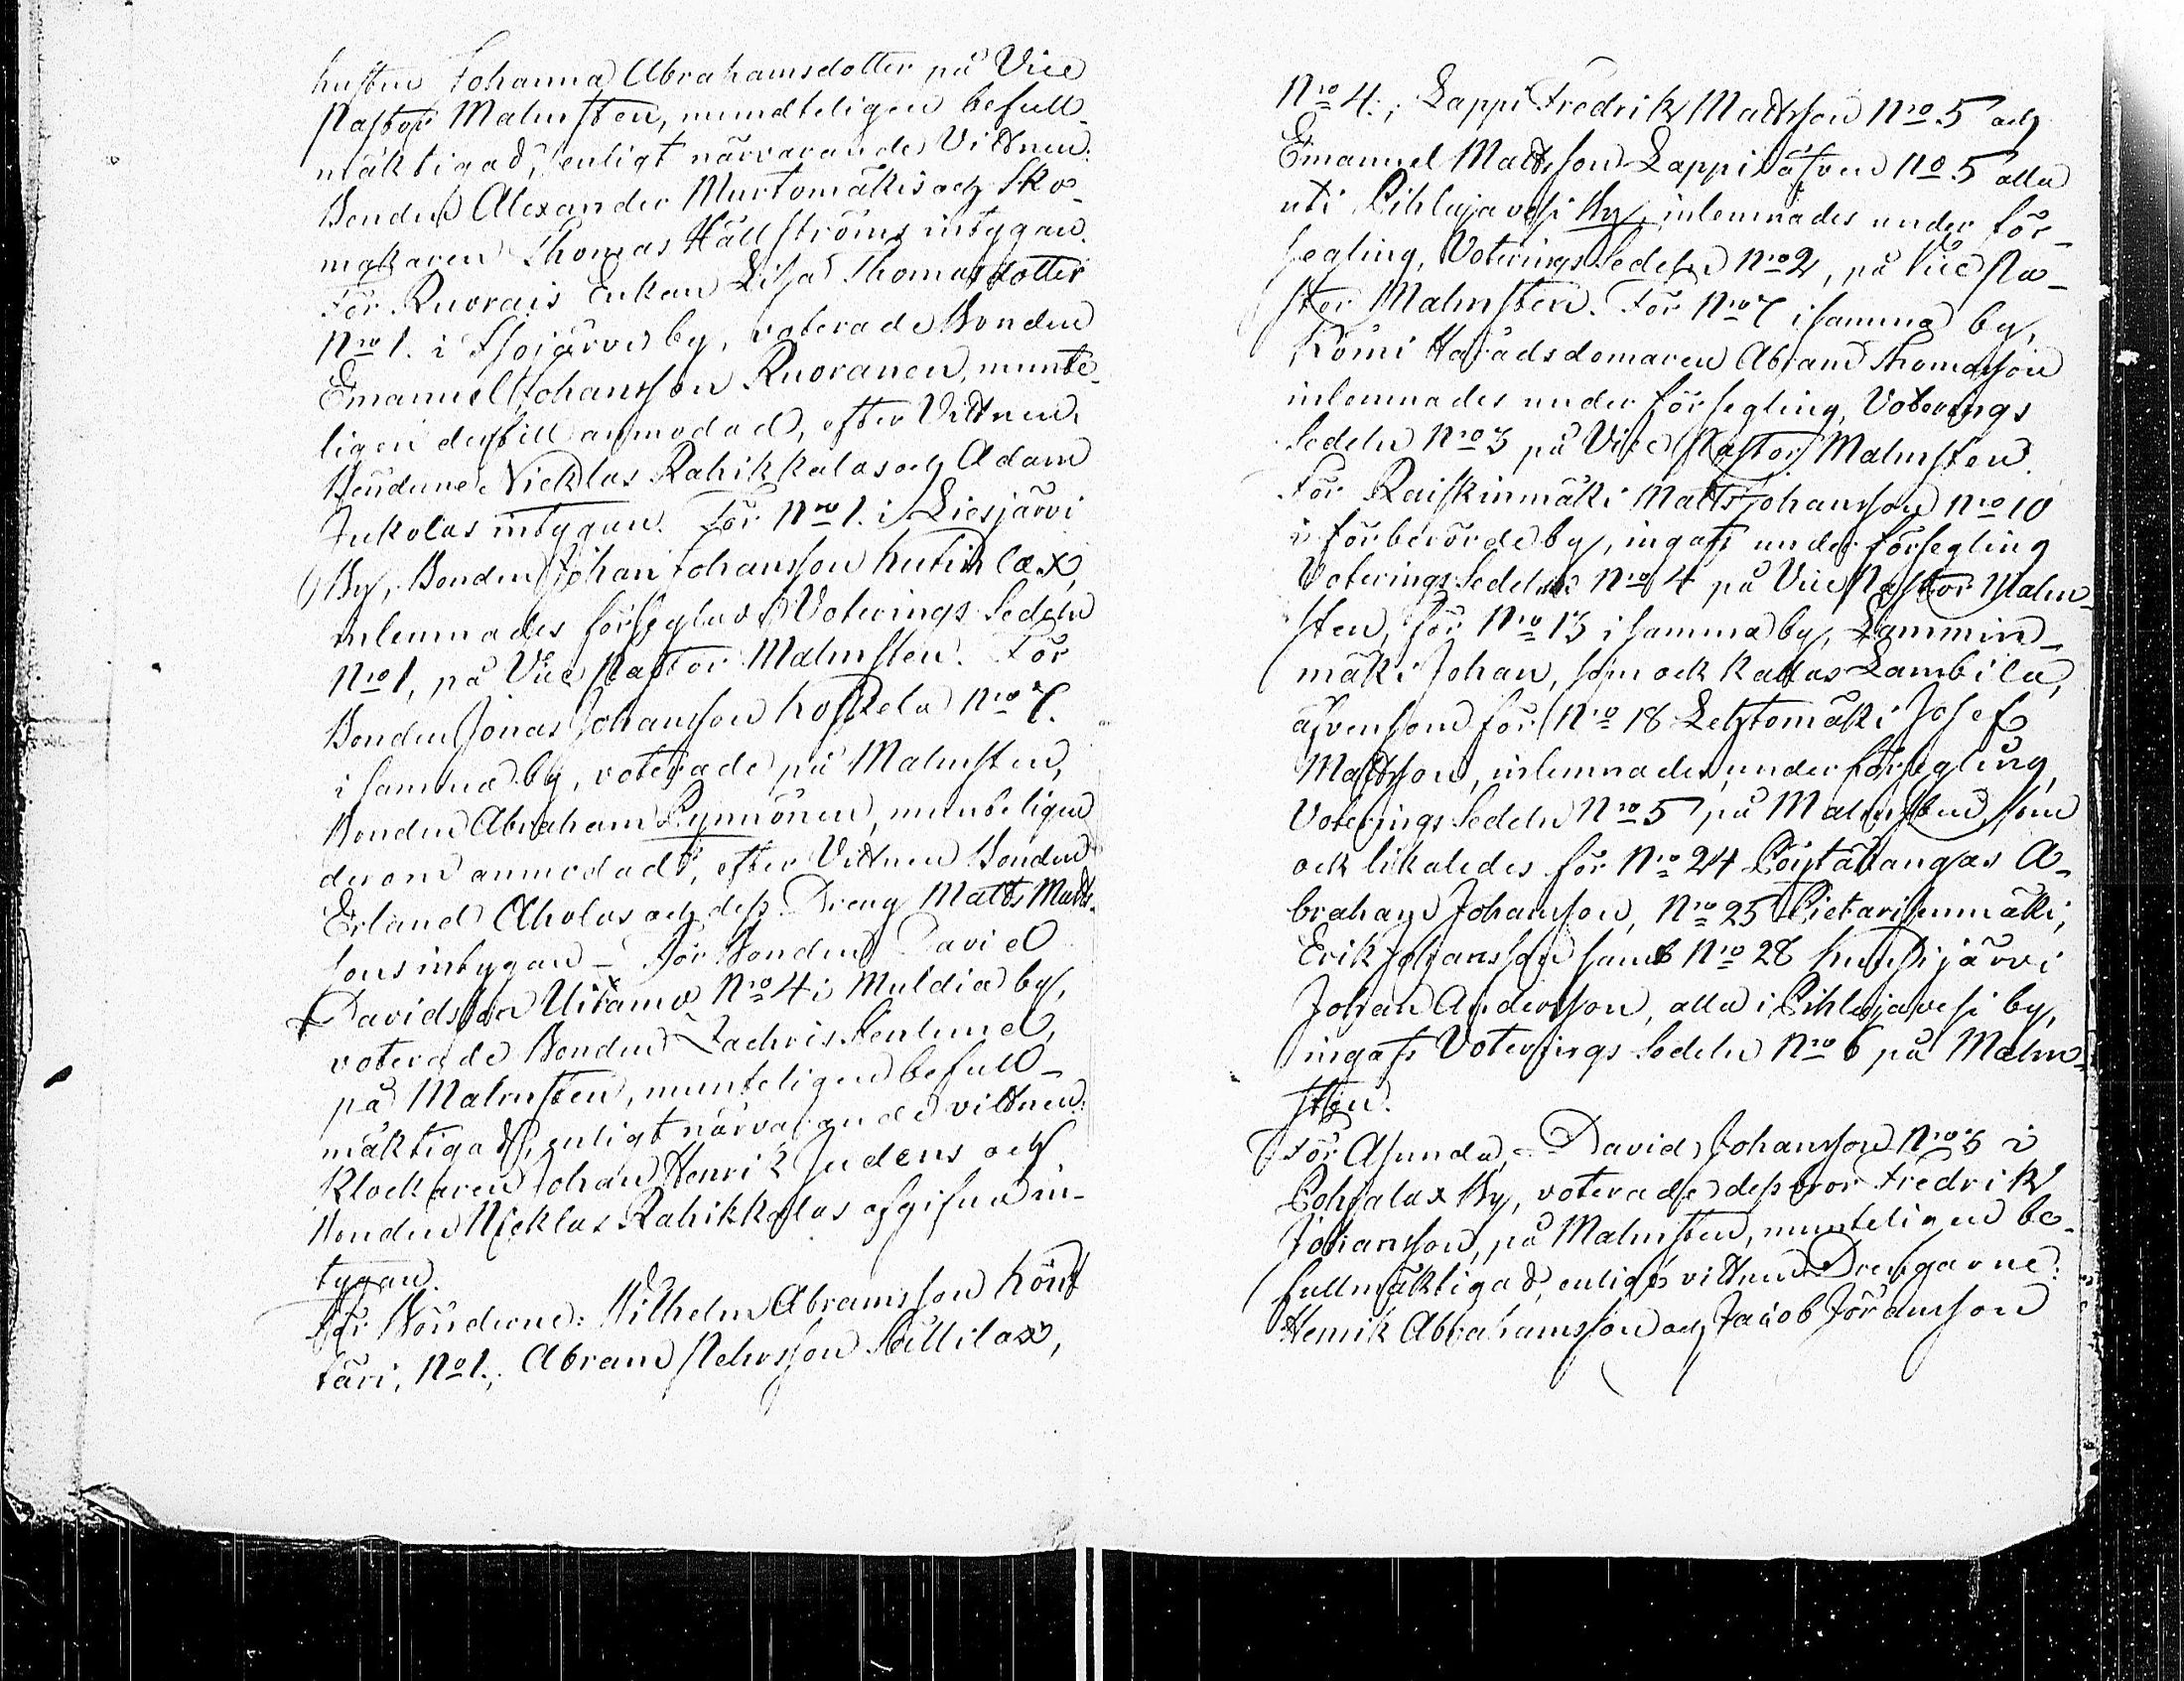 hustru Johanna Abrahamsdotter på Vice
Pastor Malmsten, mundteligen befull-
mäktigad, enligt närvarande Vittnen:
Bonden Alexander Murtomäkis och Sko-
makaren Thomas Hällströms intygan.
För Ruorais Enkan Lisa Thomasdotter
Nro 1. i Ilsojärvi by, voterade Bonden
Emanuel Johansson Ruoranen, munte-
ligen dertill anmodad, efter Vittnen
Bönderne Nicklas Rahikkalas och Adam
Jukolas intygan. För Nro 1. i Liesjärvi
By, Bonden Johan Johansson
inlemnades förseglad Voterings Sedeln
Nro 1, på Vice Pastor Malmsten. För
Bonden Jonas Johansson Koskela Nro 7.
i samma by, voterade på Malmsten,
Bonden Abraham Rynnönen, munteligen
derom anmodad, efter Vittnen Bonden
Erland Aholas och dess Dreng Matts Matts-
sons intygan – För Bonden David
Davidsson Uitamo Nro 4 i Muldia by,
voterade Bonden Zachris Stenlund,
på Malmsten, munteligen befull-
mäktigad, enligt närvarande vittnen:
Klockaren Johan Henrik Judens och
Bonden Nicklas Rahikkalas afgifna in-
tygan.
För Bönderne: Wilhelm Abramsson Könt
täri, No 1.; Abram Pehrsson Sällilax,
Nro 4.; Lappi Fredrik Mattsson Nro 5 och
Emanuel Mattsson Lappi äfven No 5 alla
uti Pihlajavesi By, inlemnades under för-
segling, Voterings Sedeln Nro 2, på Vice Pa-
stor Malmsten. För Nro 7 i samma by,
Kömi Häradsdomaren Abram Thomasson
inlemnades under försegling, Voterings
Sedeln Nro 3 på Vice Pastor Malmsten.
För Raiskinmäki Matts Johansson Nro 10
i förberörde by, ingafs under försegling
Voterings Sedeln Nro 4 på Vice Pastor Malm-
sten, för Nro 13 i samma by, Lammin-
mäki Johan, som ock kallas Lambila,
äfvensom för Nro 18 Lehtomäki Josef
Mattsson, inlemnades under försegling,
Voterings Sedeln Nro 5 på Malmsten, som
ock likaledes för Nro 24 Pöytäkangas A-
braham Johansson, Nro 25 Pietarisenmäki,
Erik Johansson samt Nro 28
Johan Andersson, alla i Pihlajavesi by,
ingafs Voterings Sedeln Nro 6 på Malm-
sten.
För Asunda, David Johansson Nro 5 i
Pohjalax By, voterade dess bror Fredrik
Johansson, på Malmsten, munteligen be-
fullmäktigad, enligt vittnen Drengarne:
Henrik Abrahamsson och Jacob Göransson